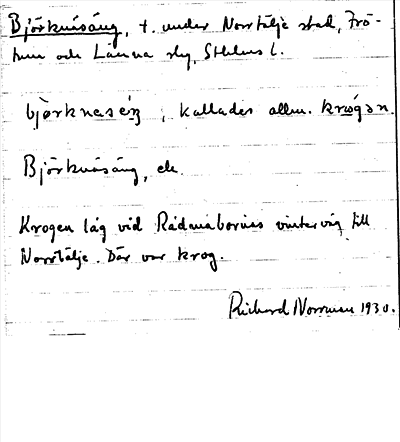 Björknäsäng, t. under Norrtälje stad, Frö-
tuna och Länna slg, Sthlms l.
bjørknæséŋ ; kallades allm. krωgən.
Björknäsäng, ek.
Krogen låg vid Rådmabornas vinterväg till
Norrtälje. Där var krog.
Richard Norrman 1930.